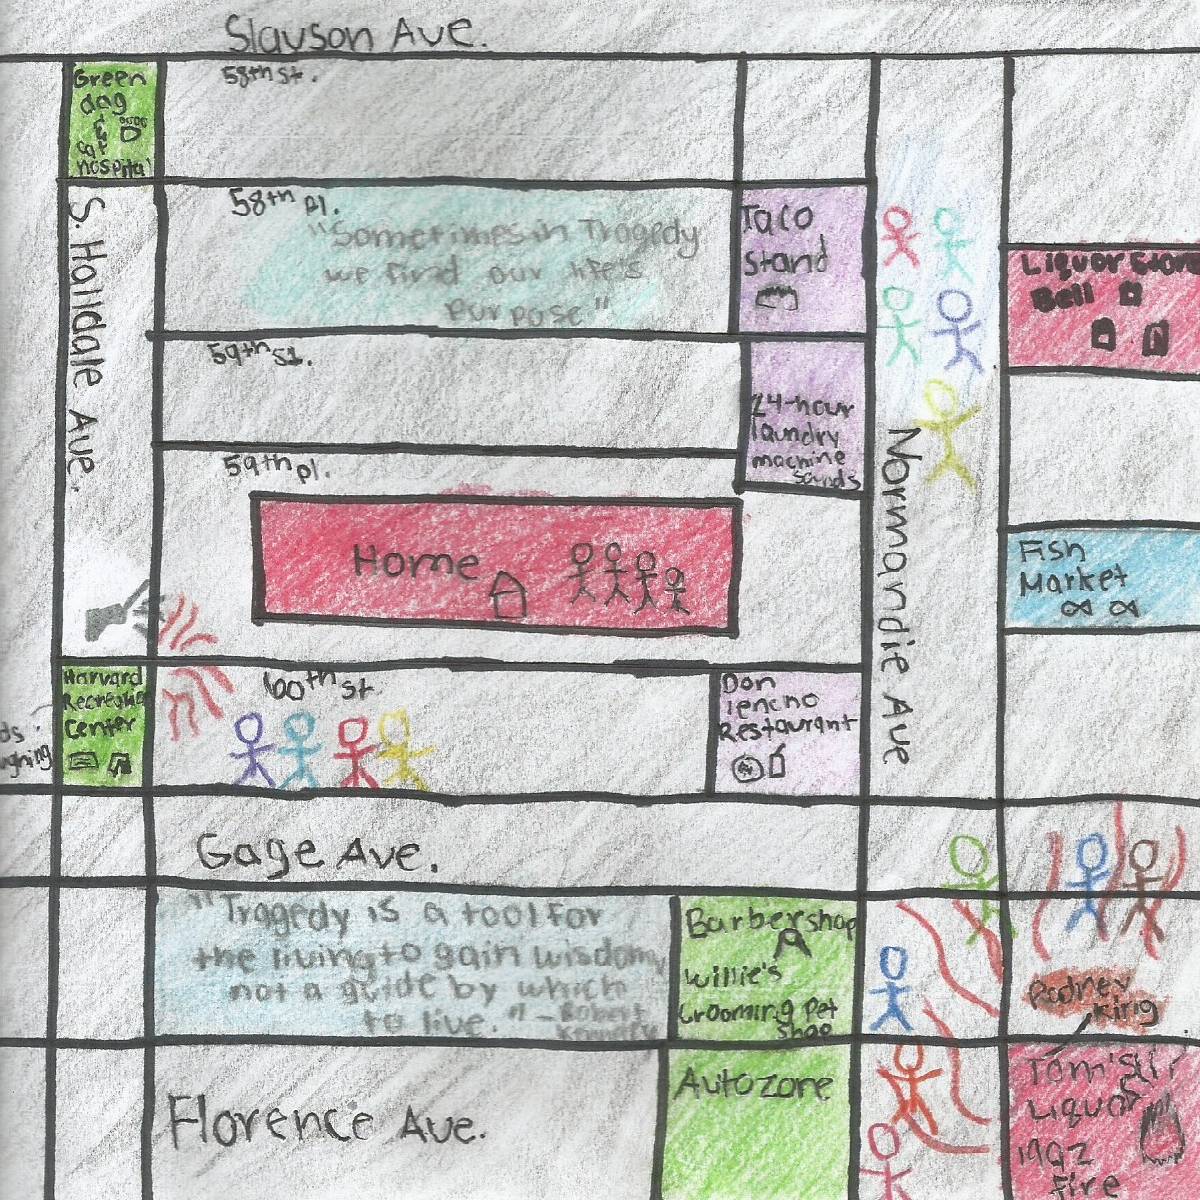 Slauson Ave.
58th St.
Green
dog
&
cat
hospital
S. Halldale Ave.
58th pl.
"Sometimes in Tragedy
we find our life's
purpose"
Taco
Stand
Liquor Store
Bell
59th St.
24-hour
laundry
machine
sounds
Normandie Ave
59th pl.
Home
Fish
Market
Harvard
Recreation
Center
60th St.
Don
Restaurant
Gage Ave.
"Tragedy is a tool for
the living to gain wisdom,
not a guide by which
to live." - Robert
Kennedy
Barbershop
Willie's
Grooming Pet
Shop
Rodney
King
Florence Ave.
Autozone
Tom's
Liquor
1992
fire